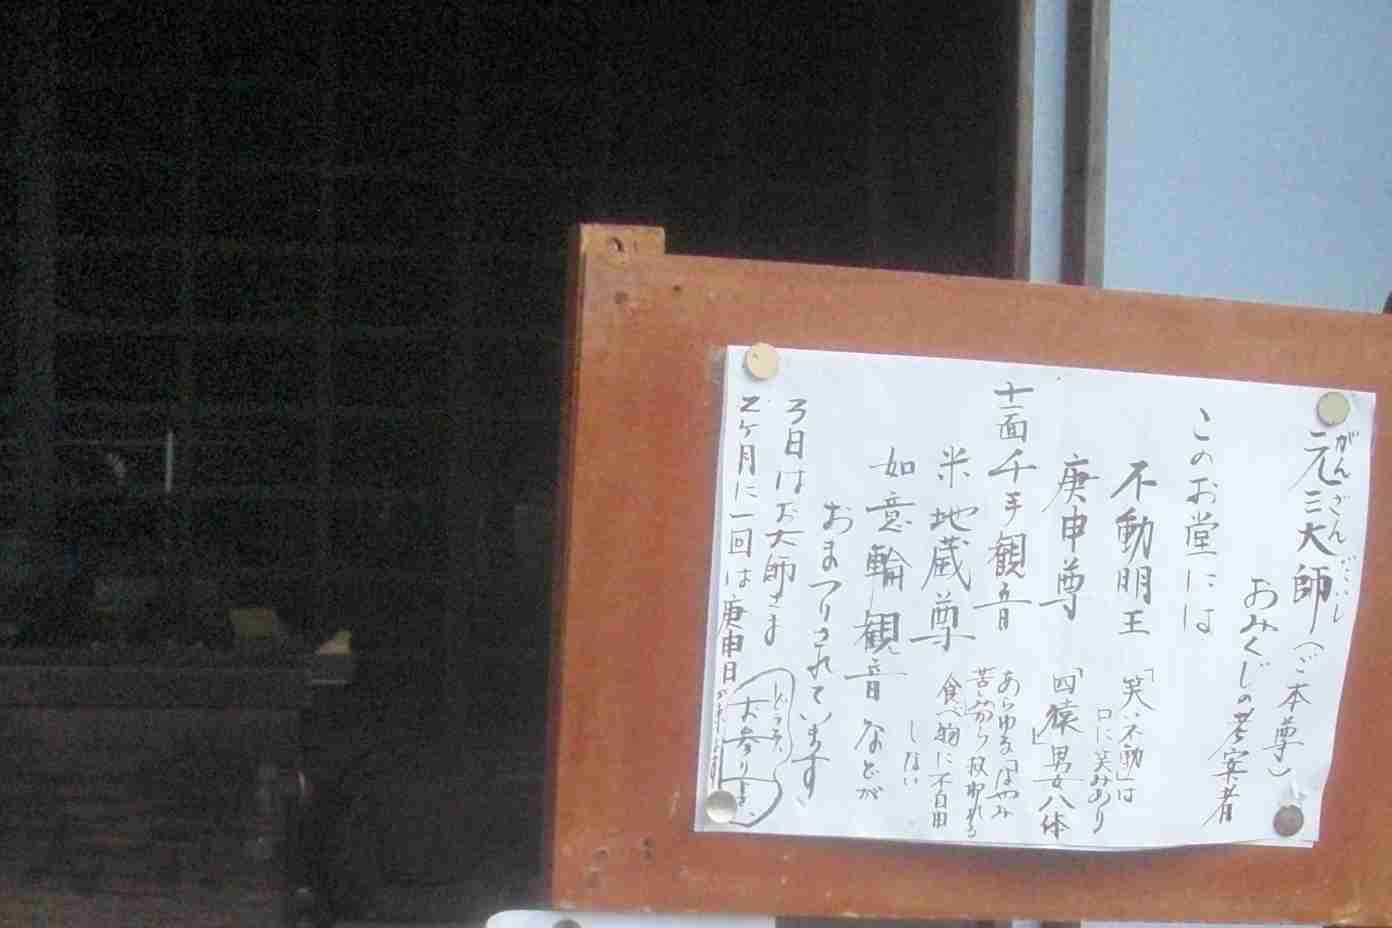 元三大師（ご本尊）
がんざんだいし
おみくじの考案者
このお堂には
不動明王 「笑い不動」は
口に笑みあり
庚申尊 「四猿」男女八体
十一面千手観音 あらゆる悩み
苦労から救われる
米地蔵尊 食べ物に不自由
しない
如意輪観音などが
おまつりされています
3日はお大師さま
2ヶ月に一回は庚申日
お参り